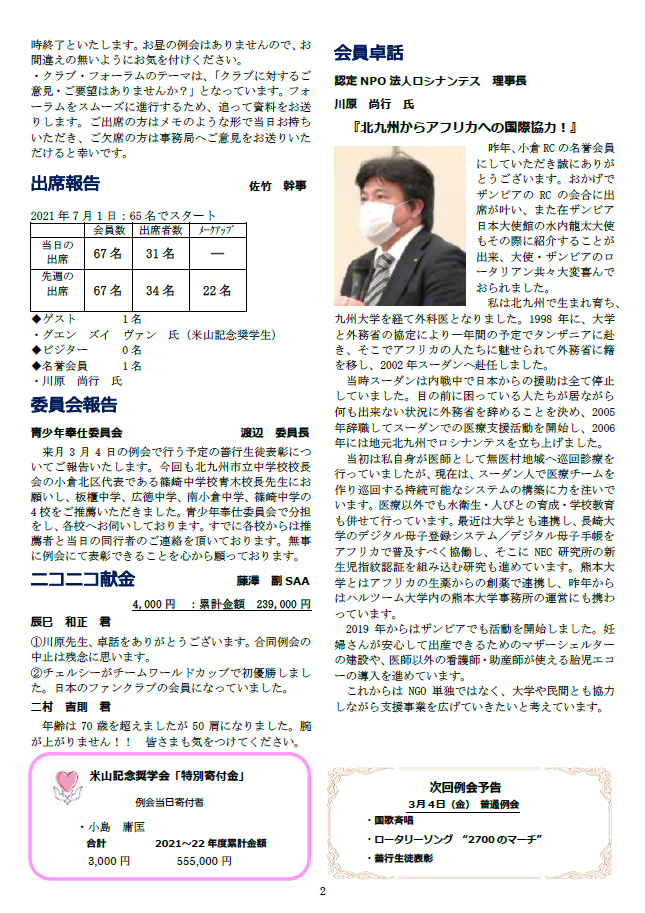 時終了といたします。お昼の例会はありませんので、お
間違えの無いようにお気を付けください。
・クラブ・フォーラムのテーマは、「クラブに対するご
意見・ご要望はありませんか？」となっています。フォ
ーラムをスムーズに進行するため、追って資料をお送
りします。ご出席の方はメモのような形で当日お持ち
いただき、ご欠席の方は事務局へご意見をお送りいた
だけると幸いです。
出席報告　佐竹　幹事
2021 年 7 月 1 日：65 名でスタート
会員数　出席者数　ﾒｰｸｱｯﾌﾟ
当日の
出席　67 名　31 名　―
先週の
出席　67 名　34 名　22 名
◆ゲスト　1 名
・グエン　ズイ　ヴァン　氏（米山記念奨学生）
◆ビジター　0 名
◆名誉会員　1 名
・川原　尚行　氏
委員会報告
青少年奉仕委員会　渡辺　委員長
来月 3 月 4 日の例会で行う予定の善行生徒表彰につ
いてご報告いたします。今回も北九州市立中学校校長
会の小倉北区代表である篠崎中学校青木校長先生にお
願いし、板櫃中学、広徳中学、南小倉中学、篠崎中学の
4 校をご推薦いただきました。青少年奉仕委員会で分担
をし、各校へお伺いしております。すでに各校からは推
薦者と当日の同行者のご連絡を頂いております。無事
に例会にて表彰できることを心から願っております。
ニコニコ献金　藤澤　副 SAA
4,000 円　：累計金額　239,000 円
辰巳　和正　君
①川原先生、卓話をありがとうございます。合同例会の
中止は残念に思います。
②チェルシーがチームワールドカップで初優勝しまし
た。日本のファンクラブの会員になっていました。
二村　吉則　君
年齢は 70 歳を超えましたが 50 肩になりました。腕
が上がりません！！　皆さまも気をつけてください。
米山記念奨学会「特別寄付金」
例会当日寄付者
・小島　庸匡
合計　2021～22 年度累計金額
3,000 円　555,000 円
会員卓話
認定 NPO 法人ロシナンテス　理事長
川原　尚行　氏
『北九州からアフリカへの国際協力！』
昨年、小倉 RC の名誉会員
にしていただき誠にありが
とうございます。おかげで
ザンビアの RC の会合に出
席が叶い、また在ザンビア
日本大使館の水内龍太大使
もその際に紹介することが
出来、大使・ザンビアのロ
ータリアン共々大変喜んで
おられました。
私は北九州で生まれ育ち、
九州大学を経て外科医となりました。1998 年に、大学
と外務省の協定により一年間の予定でタンザニアに赴
き、そこでアフリカの人たちに魅せられて外務省に籍
を移し、2002 年スーダンへ赴任しました。
当時スーダンは内戦中で日本からの援助は全て停止
していました。目の前に困っている人たちが居ながら
何も出来ない状況に外務省を辞めることを決め、2005
年辞職してスーダンでの医療支援活動を開始し、2006
年には地元北九州でロシナンテスを立ち上げました。
当初は私自身が医師として無医村地域へ巡回診療を
行っていましたが、現在は、スーダン人で医療チームを
作り巡回する持続可能なシステムの構築に力を注いで
います。医療以外でも水衛生・人びとの育成・学校教育
も併せて行っています。最近は大学とも連携し、長崎大
学のデジタル母子登録システム／デジタル母子手帳を
アフリカで普及すべく協働し、そこに NEC 研究所の新
生児指紋認証を組み込む研究も進めています。熊本大
学とはアフリカの生薬からの創薬で連携し、昨年から
はハルツーム大学内の熊本大学事務所の運営にも携わ
っています。
2019 年からはザンビアでも活動を開始しました。妊
婦さんが安心して出産できるためのマザーシェルター
の建設や、医師以外の看護師・助産師が使える胎児エコ
ーの導入を進めています。
これからは NGO 単独ではなく、大学や民間とも協力
しながら支援事業を広げていきたいと考えています。
次回例会予告
3 月 4 日（金）　普通例会
・国歌斉唱
・ロータリーソング　“2700 のマーチ”
・善行生徒表彰
2